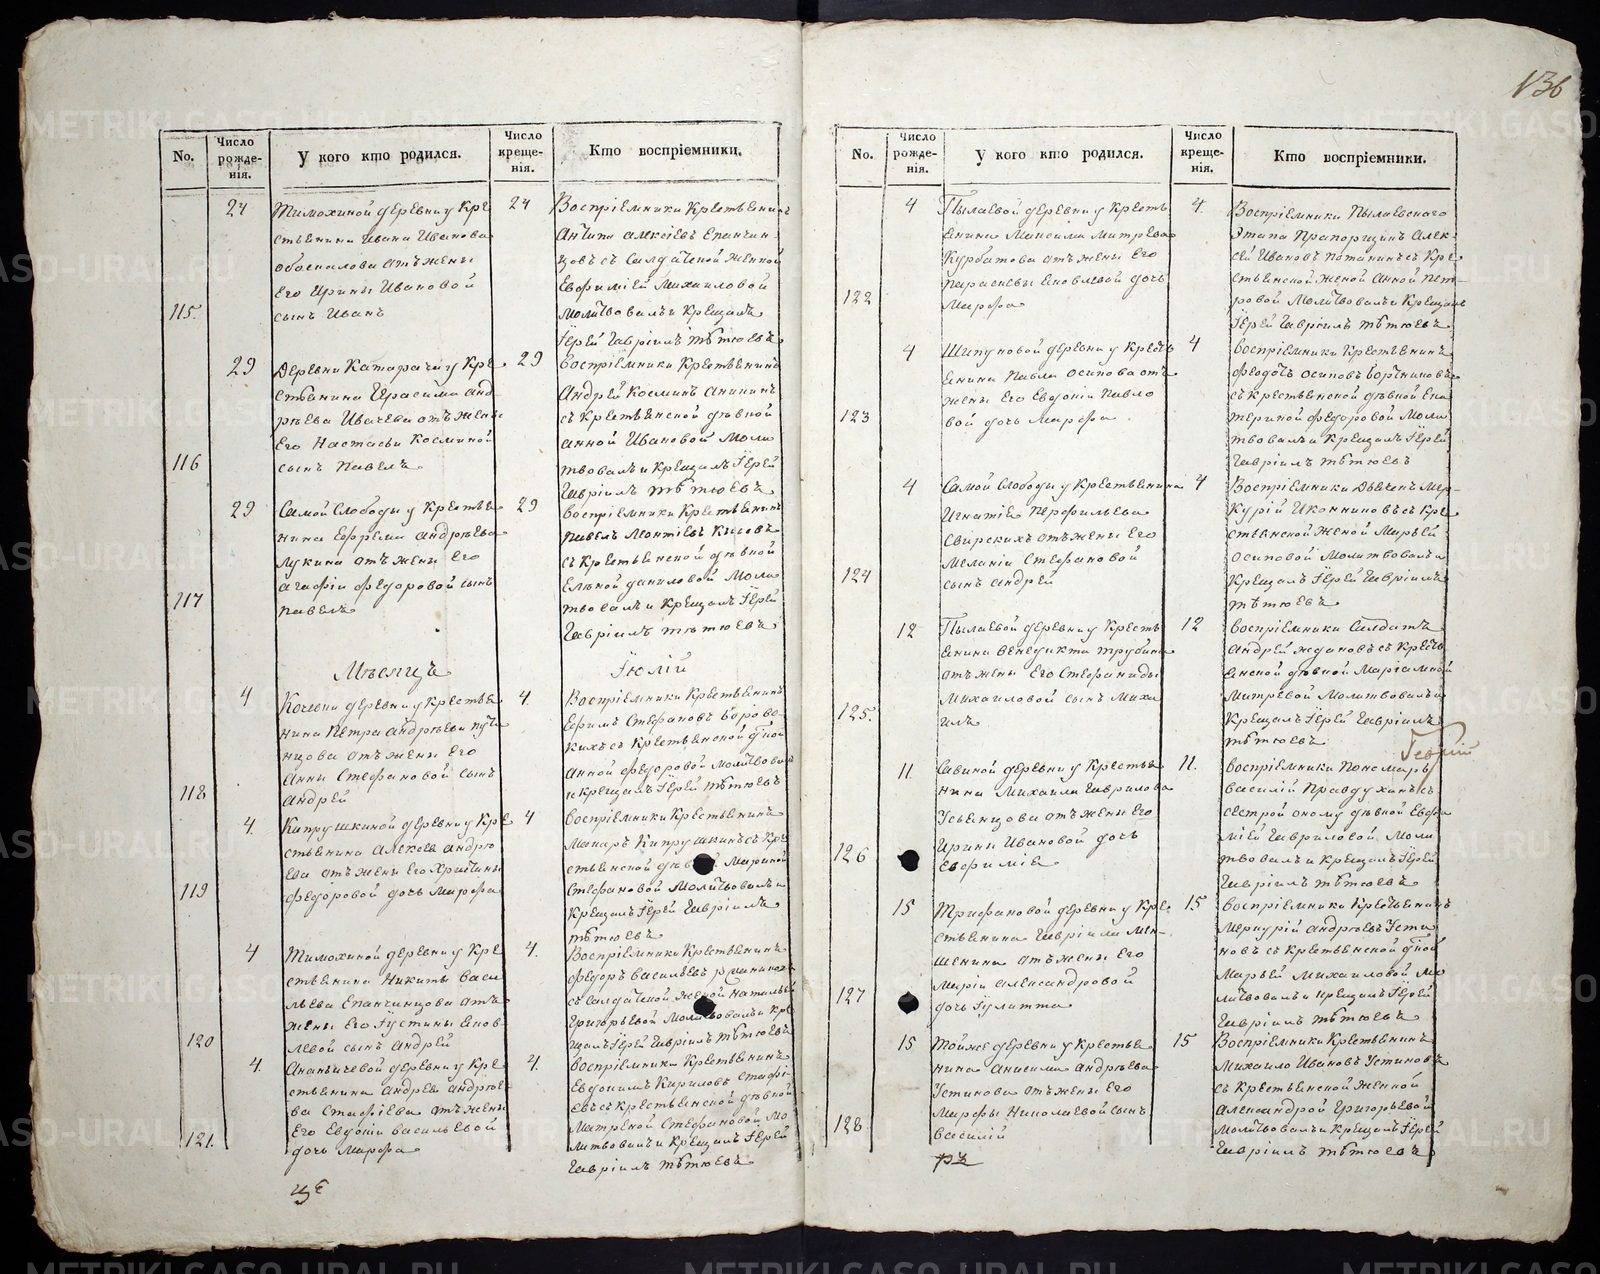 136
No.
Число рожде-нія.
У кого кто родился.
Число креще-нія.
Кто воспріемники.
24
Тимохиной деревни у кре
стьянина Ивана Иванова
отъ жены
Его Ирины Ивановой
115.
сынъ Иванъ
24
Воспріемники Крестьянинъ
Антипъ Алексѣевъ Епанчин-
цовъ съ Салдатской женкой
Евфиміей Михаиловой
Молитвовалъ и Крещалъ
Іерей Гавріилъ Тѣтюевъ
29
Деревни Катарачъ у Кре
стьянина Герасима Анд
рѣева Ивачева отъ жены
Его Настасьи Косминой
116
сынъ Павелъ
29
Воспріемники Крестьянинъ
Андрей Косминъ Ананинъ
съ Крестьянской дѣвкой
Анной Ивановой Моли
твовалъ и Крещалъ Іерей
Гавріилъ Тѣтюевъ
29
Самой Слободы у Крестья
нина Ефрема Андрѣева
Лукина отъ жены Его
Агафіи Федоровой сынъ
117
Павелъ
29
Воспріемники Крестьянинъ
Павелъ Леонтіевъ
съ Крестьянской дѣвкой
Еленой Даниловой Моли
твовалъ и Крещалъ Іерей
Гавріилъ Тѣтюевъ
Мѣсяцъ Іюлій
4
деревни у крестья
нина Петра Андрѣева
отъ жены Его
Анны Стефановой сынъ
118
Андрей
4.
Воспріемники Крестьянинъ
Ефимъ Стефановъ Борово-
кихъ съ Крестьянской дѣвкой
Анной Федоровой Молитвовалъ
и Крещалъ Іерей Тѣтюевъ
4.
Кипрушкиной деревни у Кре
стьянина Алексея Андрѣ
ева отъ жены Его Христины
119
Федоровой дочь Марфа
4
Воспріемники Крестьянинъ
Макаръ Кипрушкинъ съ Кре
стьянской Мариной
Стефановой Молитвовалъ и
Крещалъ Іерей Гавріилъ
Тѣтюевъ
4
Тимохиной деревни у Кре
стьянина Никиты Васи
льева Епанчинцова отъ
жены Его Іустины Яков
120
левой сынъ Андрей
4.
Воспріемники Крестьянинъ
Федоръ Васильевъ
съ Салдатской женкой Натальей
Григорьевой Молитвовалъ и Кре
щалъ Іерей Гавріилъ Тѣтюевъ
4.
Ананьичевой деревни у Кре
стьянина Андрея Андрѣе
ва Стафіева отъ жены
Его Евдокіи Васильевой
121.
дочь Марфа
4.
Воспріемники Крестьянинъ
Евдокимъ Кириловъ Стафі-
евъ съ Крестьянской дѣвкой
Матреной Стефановой Мо
литвовалъ и Крещалъ Іерей
Гавріилъ Тѣтюевъ
No.
Число рожде-нія.
У кого кто родился.
Число креще-нія.
Кто воспріемники.
4
Пылаевой деревни у Кресть
янина Максима Митрева
Курбатова отъ жены Его
Параскевы Яковлевой дочь
122
Марфа
4.
Воспріемники Пылаевскаго
Этапа Прапорщикъ Алек-
сей Ивановъ Потанинъ съ Кре
стьянской женой Анной Пет-
ровой Молитвовалъ и Крещалъ
Іерей Гавріилъ Тѣтюевъ
4
Шипуновой деревни у Кресть
янина Павла Осипова отъ
жены Его Евдокіи Павло
123
вой дочь Марфа
4
Воспріемники Крестьянинъ
Федотъ Осиповъ
съ Крестьянской дѣвкой Ека
териной Федоровой Моли
твовалъ и Крещалъ Іерей
Гавріилъ Тѣтюевъ
4
Самой Слободы у Крестьянина
Игнатія Перфильева
Свирскихъ отъ жены Его
Меланіи Стефановой
124
сынъ Андрей
4
Воспріемники Дьяконъ Мер-
курій Иконниковъ съ Кре
стьянской женой Марьей
Осиповой Молитвовалъ и
Крещалъ Іерей Гавріилъ
Тѣтюевъ
12
Пылаевой деревни у Кресть
янина Венедикта Трубина
отъ жены Его Стефаниды
Михаиловой сынъ Миха
125.
илъ
12
Воспріемники Салдатъ
Андрей Ждановъ съ Кресть
янской дѣвкой Марьей
Митревой Молитвовалъ и
Крещалъ Іерей Гавріилъ
Тѣтюевъ
11
Савиной деревни у Крестья
нина Михаила Гаврилова
Усѣнцова отъ жены Его
Ирины Ивановой дочь
126
Евфимія
11.
Воспріемники Пономарь
Василій Правдухинъ съ
сестрой оному дѣвкой Евфи
міей Гавриловой Моли
твовалъ и Крещалъ Іерей
Гавріилъ Тѣтюевъ
15
Трифановой деревни у Кре
стьянина Гавріила Мен-
шенина отъ жены Его
Маріи Александровой
127
дочь Іулитта
15
Воспріемники Крестьянинъ
Меркурій Андрѣевъ Усти
новъ съ Крестьянской дѣвкой
Марьей Михаиловой Мо
литвовалъ и Крещалъ Іерей
Гавріилъ Тѣтюевъ
15
Той же деревни у Крестья
нина Анисима Андрѣева
Устинова отъ жены Его
Марфы Николаевой сынъ
128
Василій
15
Воспріемники Крестьянинъ
Михаило Ивановъ Устиновъ
съ Крестьянской женкой
Александрой Григорьевой
Молитвовалъ и Крещалъ Іерей
Гавріилъ Тѣтюевъ
METRIKI.GASO-URAL.RU